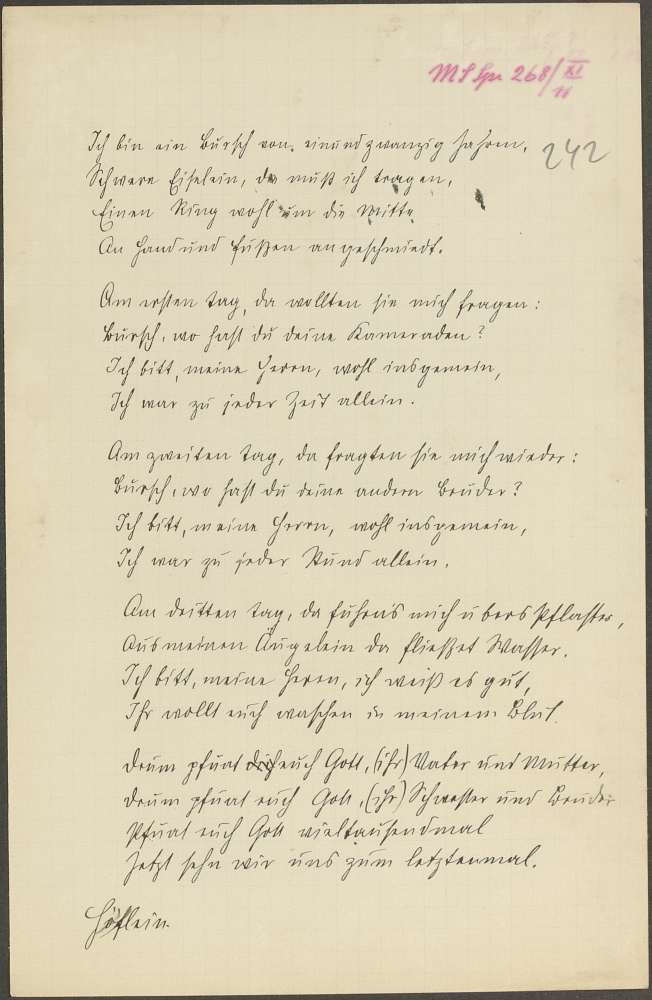 MS Spr 268/XI
11
242
Ich bin ein Bursch von einundzwanzig Jahren,
Schwere Eiselein, die muß ich tragen,
Einen Ring wohl um die Mitte
An Hand und Füßen angeschmiedt.
Am ersten Tag, da wollten sie mich fragen:
Bursch, wo hast du deine Kameraden?
Ich bitt, meine Herrn, wohl insgemein,
Ich war zu jeder Zeit allein.
Am zweiten Tag, da fragten sie mich wieder:
Bursch, wo hast du deine andern Brüder?
Ich bitt, meine Herrn, wohl insgemein,
Ich war zu jeder Stund allein.
Am dritten Tag, da führens mich übers Pflaster,
Aus meinen Äugelein da fließet Wasser.
Ich bitt, meine Herrn, ich weiß es gut,
Ihr wollt euch waschen in meinem Blut.
Drum pfüat dich euch Gott, (ihr) Vater und Mutter,
Drum pfüat euch Gott, (ihr) Schwester und Bruder
Pfüat euch Gott vieltausendmal
Jetzt sehn wir uns zum letztenmal.
Höflein.